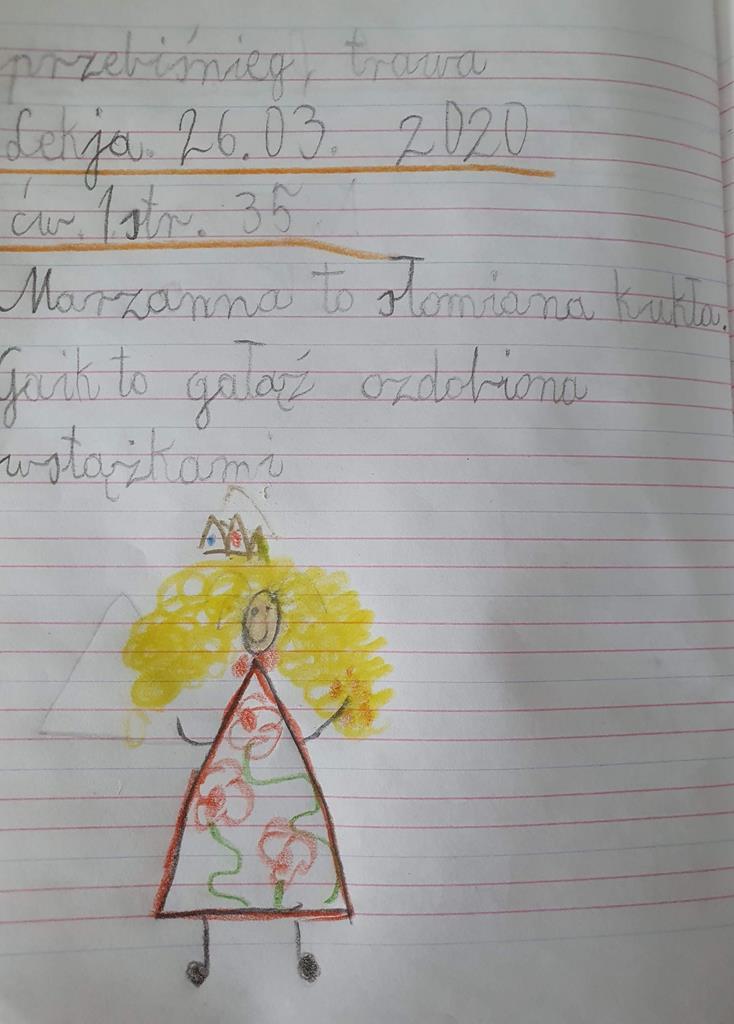 przebiśnieg, trawa
Lekja. 26.03. 2020
ćw. 1 str. 35
Marzanna to słomiana kukła.
Gaik to gałąź ozdobiona
wstążkami